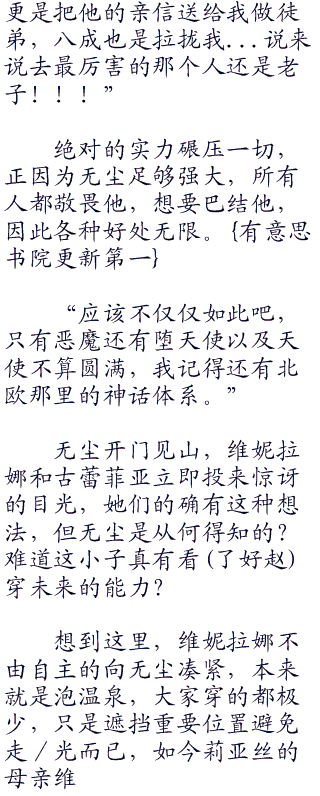 更是把他的亲信送给我做徒
弟，八成也是拉拢我...说来
说去最厉害的那个人还是老
子！！！”
绝对的实力碾压一切，
正因为无尘足够强大，所有
人都敬畏他，想要巴结他，
因此各种好处无限。{有意思
书院更新第一}
“应该不仅仅如此吧，
只有恶魔还有堕天使以及天
使不算圆满，我记得还有北
欧那里的神话体系。”
无尘开门见山，维妮拉
娜和古蕾菲亚立即投来惊讶
的目光，她们的确有这种想
法，但无尘是从何得知的？
难道这小子真有看(了好赵)
穿未来的能力？
想到这里，维妮拉娜不
由自主的向无尘凑紧，本来
就是泡温泉，大家穿的都极
少，只是遮挡重要位置避免
走／光而已，如今莉亚丝的
母亲维